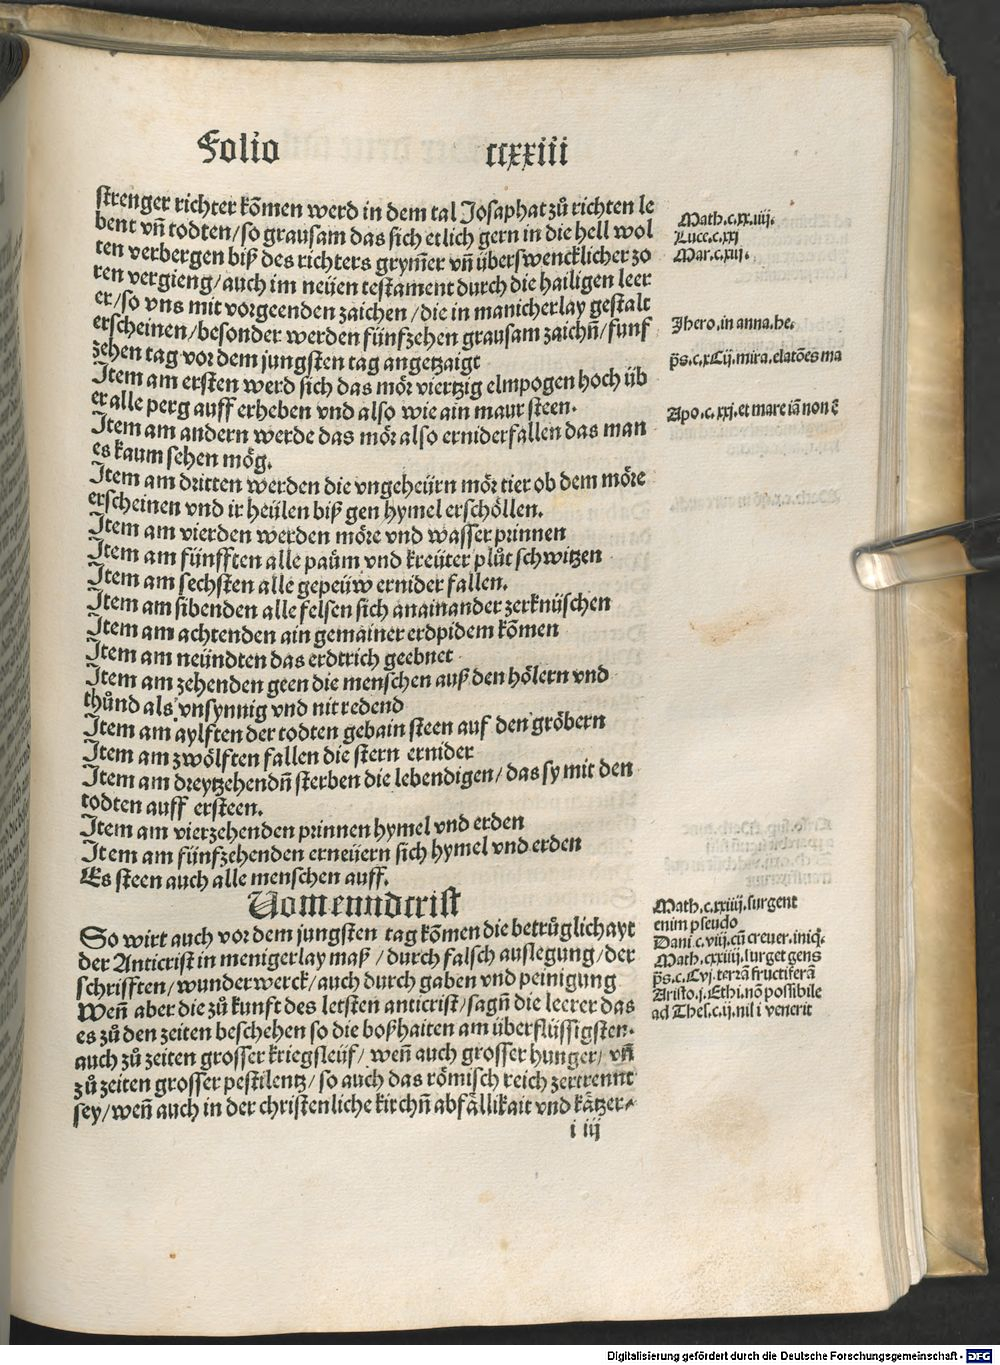 Folio ccxxiii
strenger richter kom̃en werd in dem tal Josaphat zů richten le
bent vñ todten/so grausam das sich etlich gern in die hell wol
ten verbergen biß des richters grym̃er vñ überswencklicher zo
ren vergieng/auch im neüen testament durch die hailigen leer
er/so vns mit vorgeenden zaichen/die in manicherlay gestalt
erscheinen/besonder werden fünfzehen grausam zaichñ/funf
zehen tag vor dem jungsten tag angetzaigt
Item am ersten werd sich das mör viertzig elmpogen hoch üb
er alle perg auff erheben vnd also wie ain maur steen.
Item am andern werde das mör also erniderfallen das man
es kaum sehen mög.
Item am dritten werden die vngeheürn mör tier ob dem möre
erscheinen vnd ir heülen biß gen hymel erschöllen.
Item am vierden werden möre vnd wasser prinnen
Item am fünfften alle paům vnd kreüter plůt schwitzen
Item am sechsten alle gepeüw ernider fallen.
Item am sibenden alle felsen sich anainander zerknüschen
Item am achtenden ain gemainer erdpidem kom̃en
Item am neündten das erdtrich geebnet
Item am zehenden geen die menschen auß den hölern vnd
thůnd als vnsynnig vnd nit redend
Item am aylften der todten gebain steen auf den gröbern
Item am zwölften fallen die stern ernider
Item am dreytzehendñ sterben die lebendigen/das sy mit den
todten auff ersteen.
Item am vierzehenden prinnen hymel vnd erden
Item am fünfzehenden erneüern sich hymel vnd erden
Es steen auch alle menschen auff.
Vom enndcrist
So wirt auch vor dem jungsten tag kom̃en die betrůglichayt
der Anticrist in menigerlay maß/durch falsch auslegung/der
schrifften/wunderwerck/auch durch gaben vnd peinigung
Weñ aber die zů kunft des letsten anticrist/sagñ die leerer das
es zů den zeiten beschehen so die boßhaiten am überflüssigsten.
auch zů zeiten grosser kriegsleüf/weñ auch grosser hunger/vñ
zů zeiten grosser pestilentz/so auch das römisch reich zertrennt
sey/weñ auch in der christenliche kirchñ abfällikait vnd kätzer⸗
i iij
Math.c.xx.iiij.
Luce.c.xxj
Mar.c.xiij.
Jhero.in anna.he.
ps̃.c.xCij.mira.elatões ma
Apo.c.xxj.et mare iã non ẽ
Math.c.xxiiij.surgent
enim pseudo
Dani.c.viij.cũ creuer.iniq̃.
Math.cxxiiij.surget gens
ps̃.c.Cvj.terrã fructiferã
Aristo.j.Ethi.nõ possibile
ad Thes.c.ij.nil i venerit
Digitalisierung gefördert durch die Deutsche Forschungsgemeinschaft - DFG